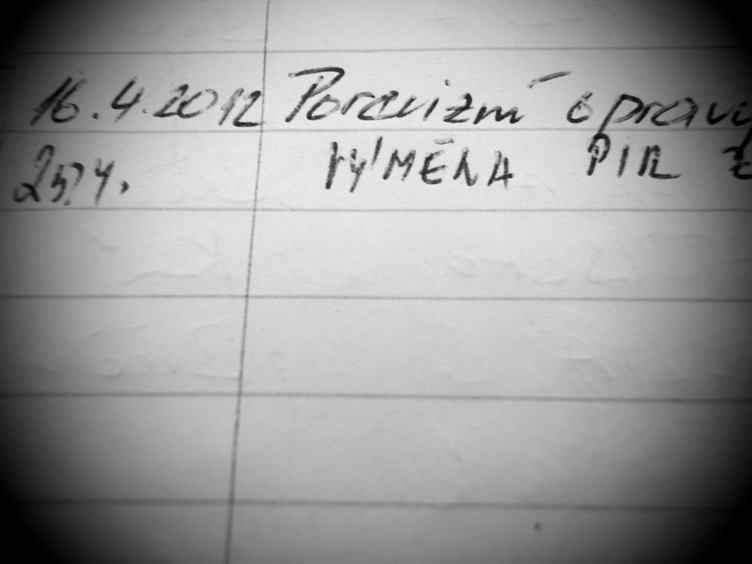 16.4.2012 Porevizní opravy
25.4. VÝMĚNA PIR